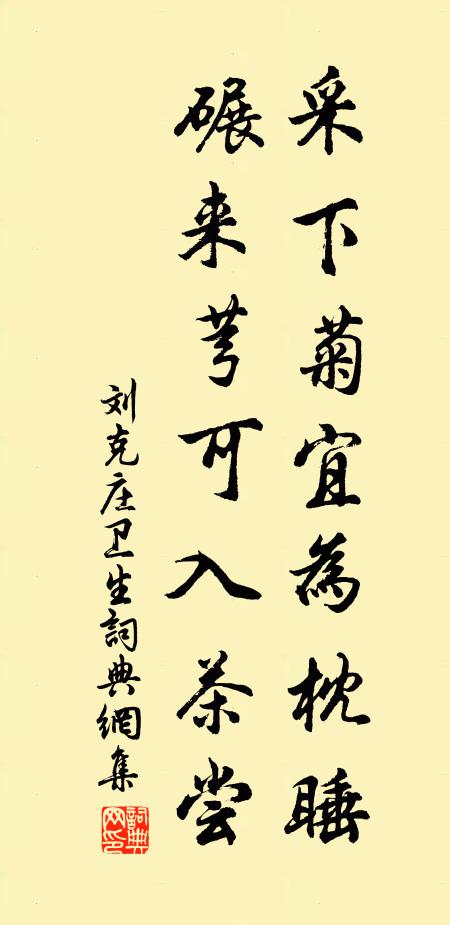 采下菊宜為枕睡
碾来芎可入茶尝
刘克庄卫生詞典網集
詞典网印